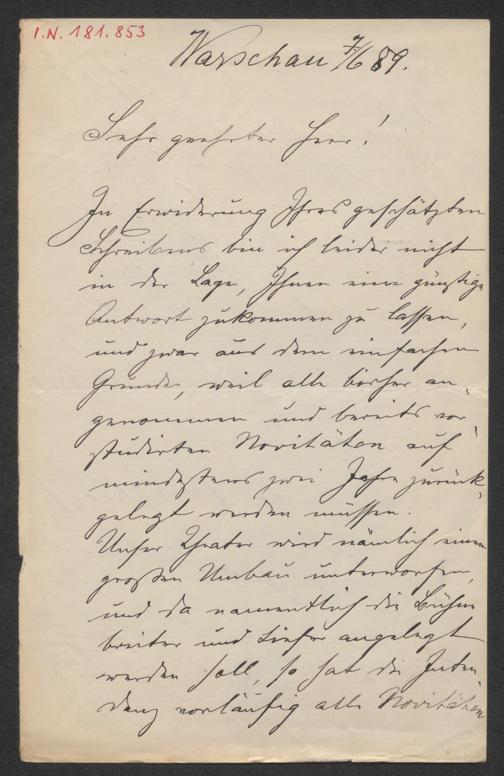 I.N. 181.853
Warschau 7/6 89.
Sehr geehrter Herr!
In Erwiderung Ihres geschätzten
Schreibens bin ich leider nicht
in der Lage, Ihnen eine günstige
Antwort zukommen zu lassen,
und zwar aus dem einfachen
Grunde, weil alle bisher an-
genommenen und bereits vor-
studirten Novitäten auf
mindestens zwei Jahre zurück-
gelegt werden müssen.
Unser Theater wird nämlich einem
großen Umbau unterworfen,
und da namentlich die Bühne
breiter und tiefer angelegt
werden soll, so hat die Inten-
danz vorläufig alle Novitäten